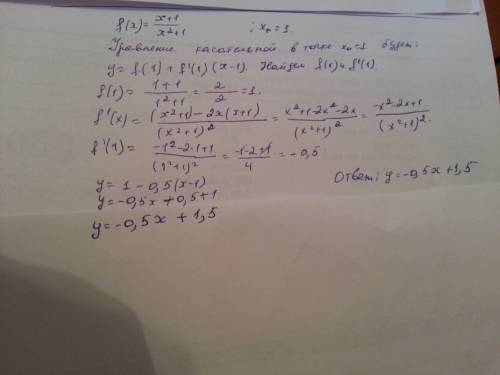 f(x) = \frac{x+1}{x^2+1} ; x_0 = 1.
Уравнение касательной в точке x_0 = 1 будет:
y = f(1) + f'(1)(x-1). Найдем f(1) и f'(1).
f(1) = \frac{1+1}{1^2+1} = \frac{2}{2} = 1.
f'(x) = \frac{(x^2+1) - 2x(x+1)}{(x^2+1)^2} = \frac{x^2+1-2x^2-2x}{(x^2+1)^2} = \frac{-x^2-2x+1}{(x^2+1)^2}.
f'(1) = \frac{-1^2-2\cdot1+1}{(1^2+1)^2} = \frac{-1-2+1}{4} = -0,5
y = 1 - 0,5(x-1)
y = -0,5x + 0,5 + 1
y = -0,5x + 1,5
Ответ: y = -0,5x + 1,5